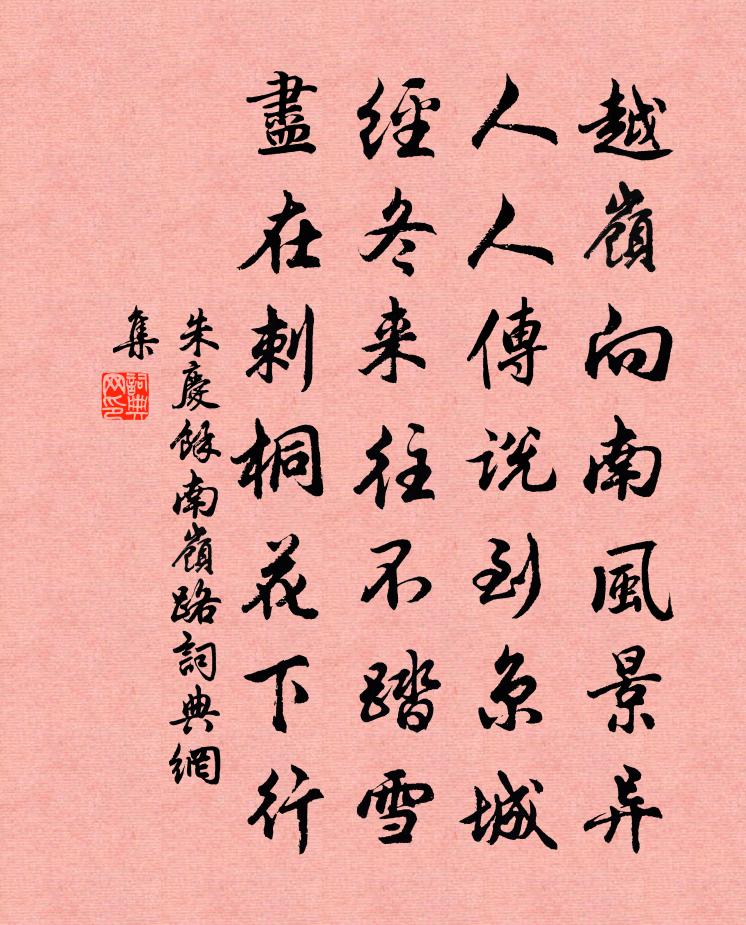 越嶺向南風景异
人人傳説到京城
經冬来往不踏雪
盡在刺桐花下行
朱慶餘南嶺路詞典網
集
詞典网印